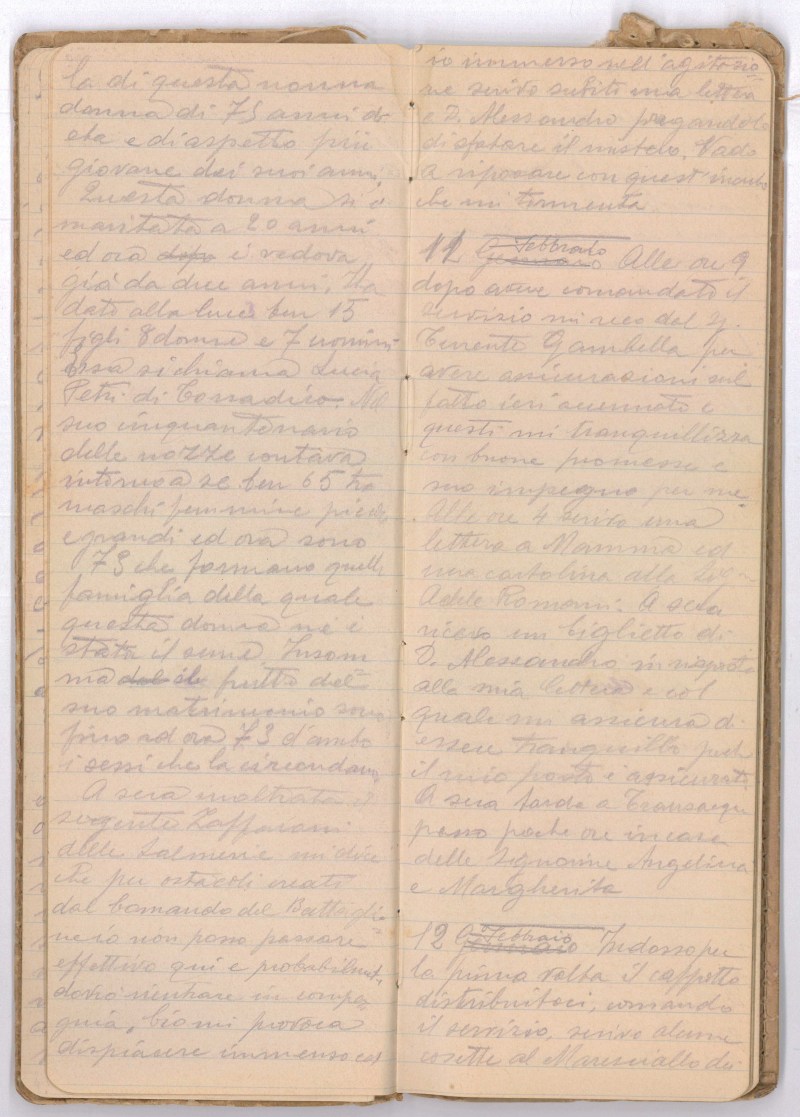 la di questa nonna
donna di 73 anni di
età e di aspetto più
giovane dei suoi anni.
Questa donna si è
maritata a 20 anni
ed ora dopo è vedova
già da due anni. Ha
dato alla luce ben 15
figli 8 donne e 7 uomini
Essa si chiama Lucia
Petri di Corradico. Nel
suo cinquantenario
delle nozze contava
intorno a se ben 65 tra
maschi femmine piccoli
e grandi ed ora sono
73 che formano quella
famiglia della quale
questa donna ne è
stata il seme. Insom
ma dal frutto del
suo matrimonio sono
fino ad ora 73 d'ambo
i sessi che la circondano
A sera inoltrata il
sergente Zaffarani
delle Salmerie mi dice
che per ostacoli creati
dal Comando del Battagli
ne io non posso passare
effettivo qui e probabilmente
dovrò rientrare in compa
gnia, ciò mi provoca
dispiacere immenso ed
io immerso nell'agitazio
ne scrivo subito una lettera
a D. Alessandro pregandolo
di sfatare il mistero. Vado
a riposare con quest'incubo
che mi tormenta
11 Gennaio Febbraio Alle ore 9
dopo avere comandato il
servizio mi reco dal S.
Tenente Gambella per
avere assicurazioni sul
fatto ieri accennato e
questi mi tranquillizza
con buone promesse e
suo impegno per me.
Alle ore 4 scrivo una
lettera a Mamma ed
una cartolina alla Sig.na
Adele Romani. A sera
ricevo un biglietto di
D. Alessandro in risposta
alla mia lettera e col
quale mi assicura di
essere tranquillo perchè
il mio posto è assicurato
A sera tarda a Transacqua
passo poche ore in casa
delle Signorine Angelina
e Margherita
12 Gennaio Febbraio Indosso per
la prima volta il cappotto
distribuitoci, comando
il servizio, scrivo alcune
cosette al Maresciallo dei